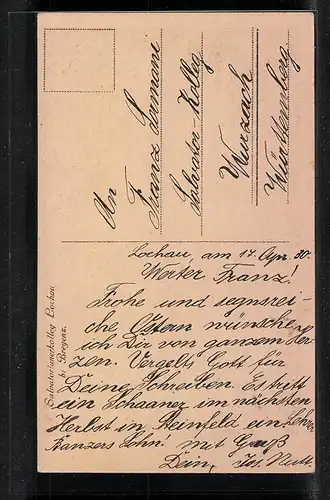 An
Franz Lemani
Salvator-Kolleg
Wurzach
Württemberg
Salvatorianerkolleg Lochau
b/ Bregenz.
Lochau, am 17. Apr. 30.
Werter Franz!
Frohe und segnsrei-
che Ostern wünsche
ich Dir von ganzem Her-
zen. Vergelts Gott für
Deine Schreiben. Es tritt
ein Schaaner im nächsten
Herbst in Steinfeld ein Lehrer
Sohn! mit Gruß
Dein, Jos.